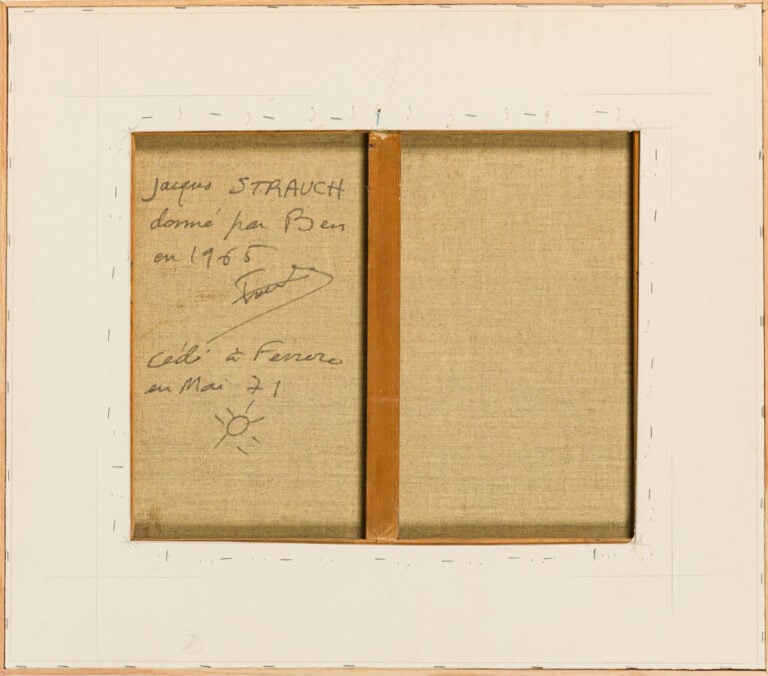 Jacques STRAUCH
donné par Ben
en 1965
cédé à Ferrero
en Mai 71